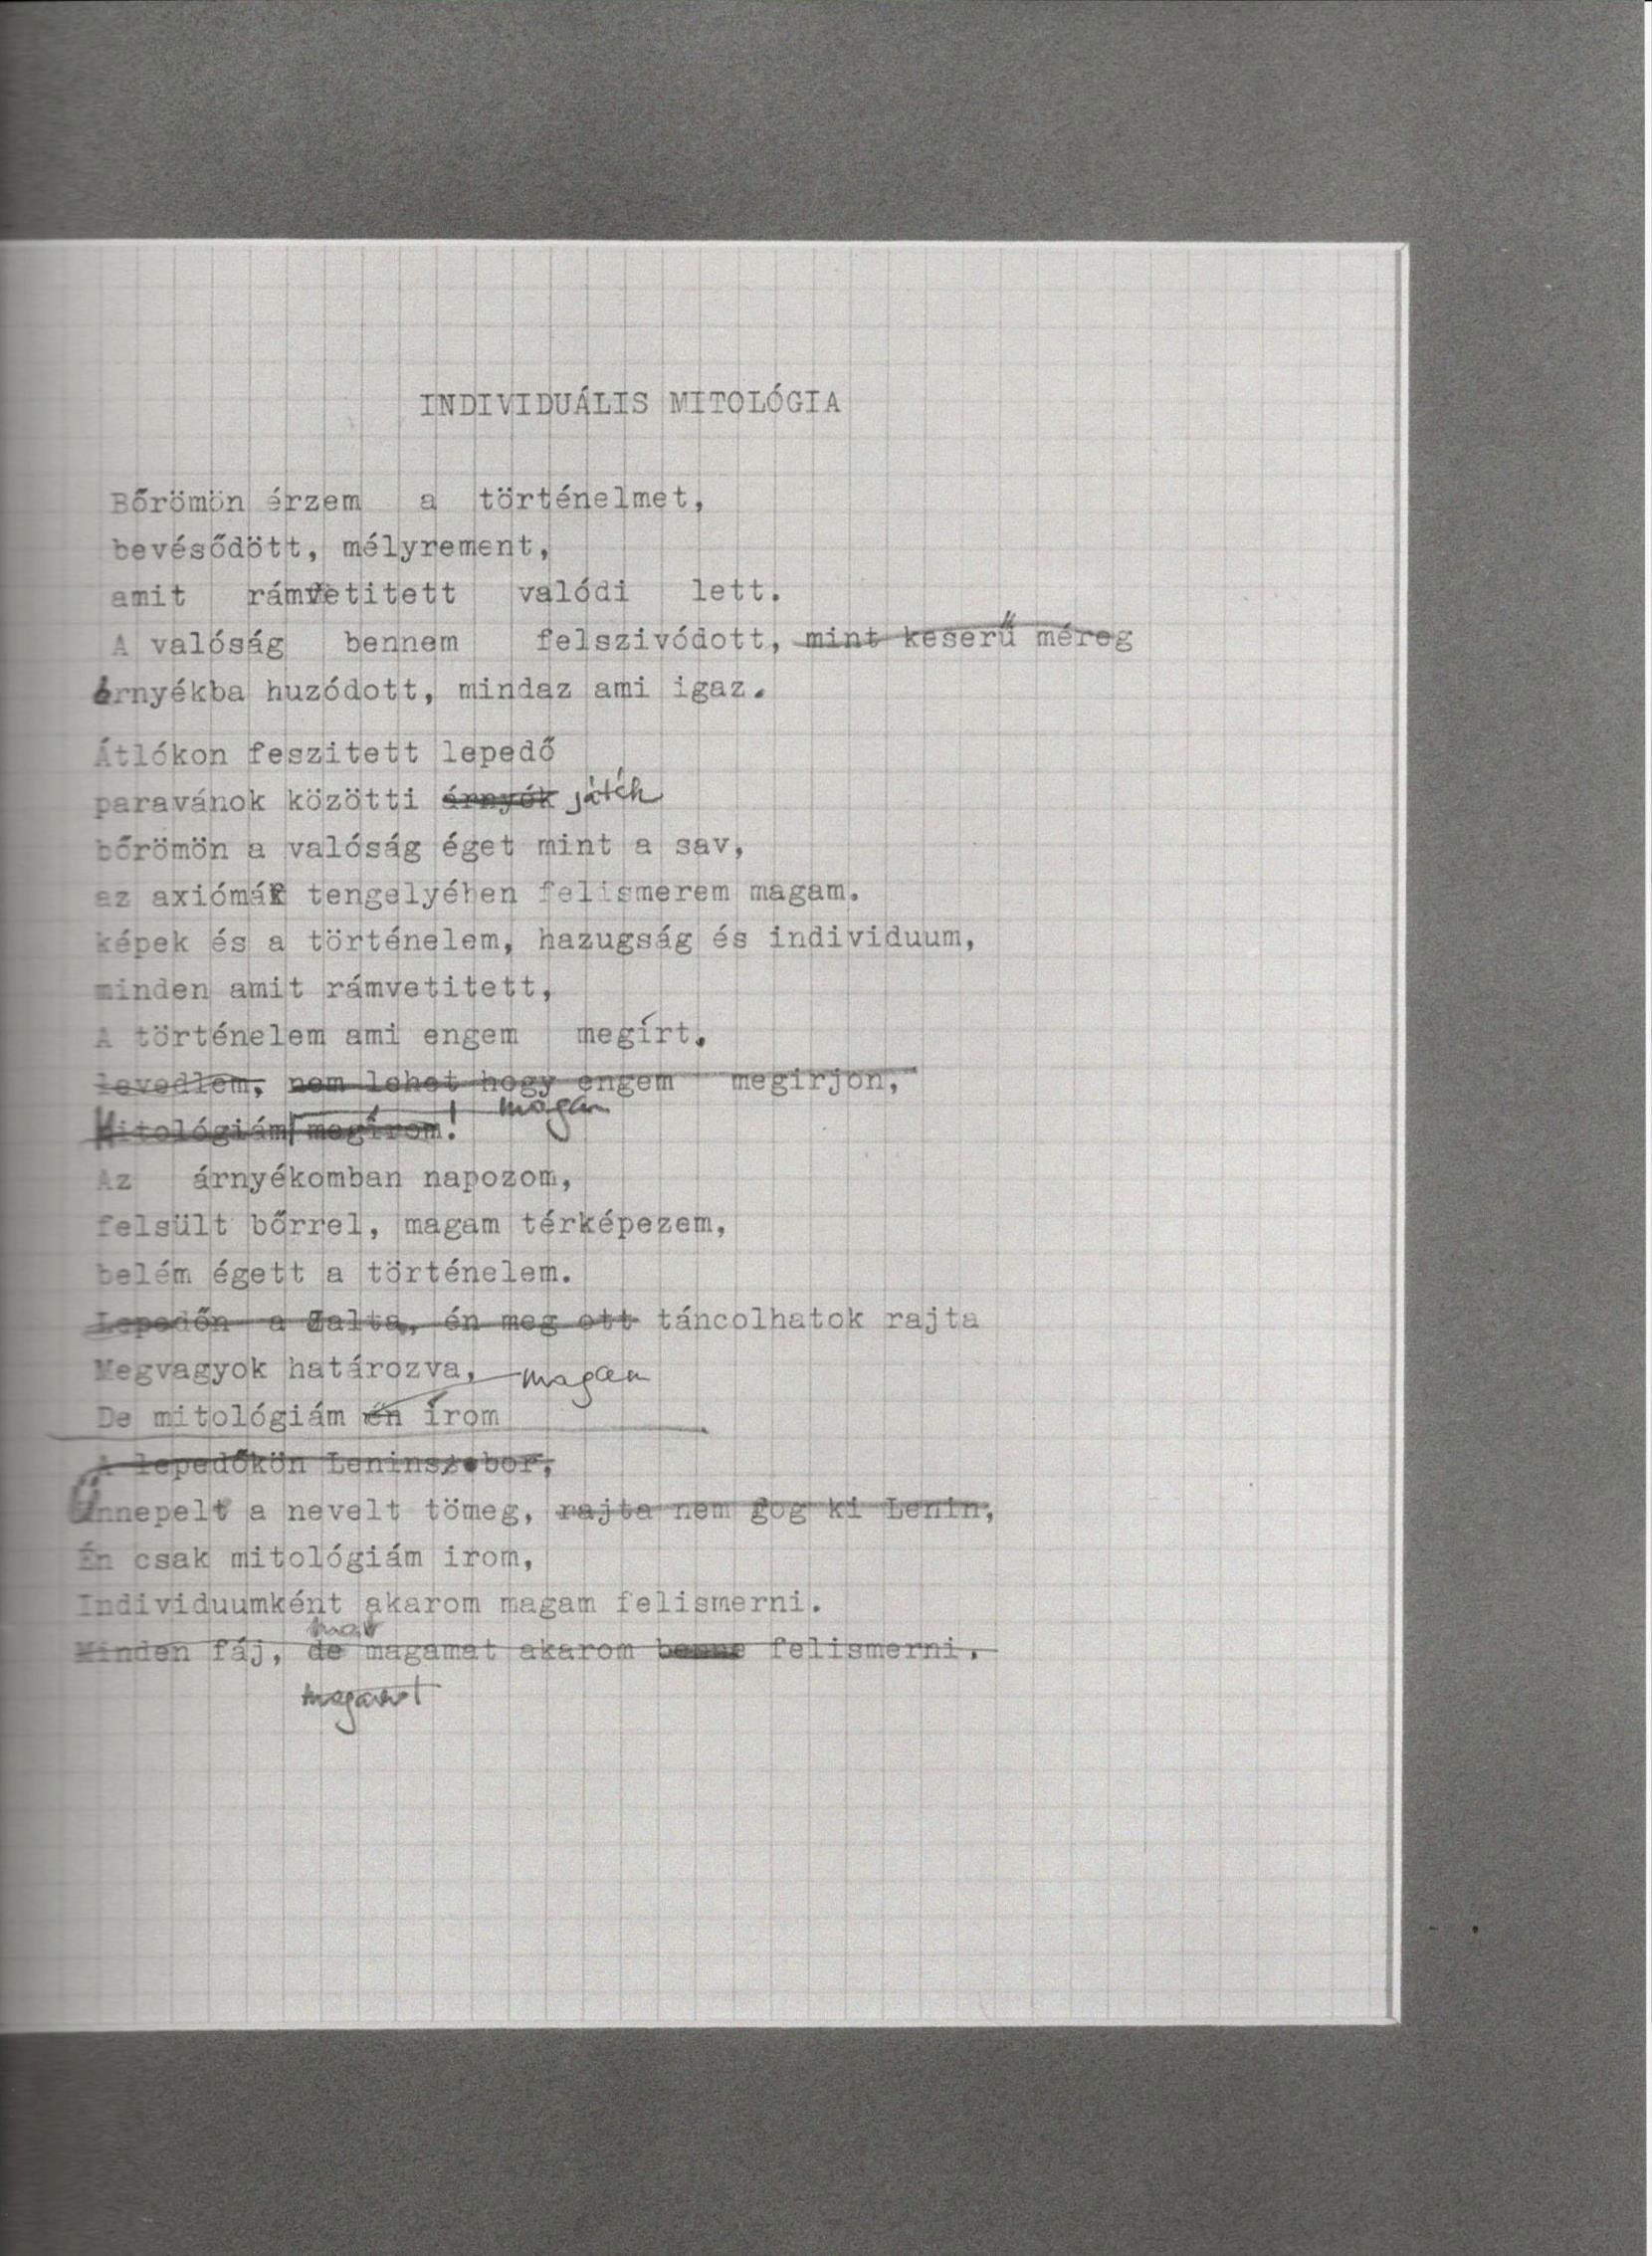 INDIVIDUÁLIS MITOLÓGIA
Bőrömön érzem a történelmet,
bevésődött, mélyrement,
amit rámvetitett valódi lett.
A valóság bennem felszivódott, mint keserű méreg
árnyékba huzódott, mindaz ami igaz.
Átlókon feszitett lepedő
paravánok közötti árnyék játék
bőrömön a valóság éget mint a sav,
az axiómák tengelyében felismerem magam.
képek és a történelem, hazugság és individuum,
minden amit rámvetitett,
A történelem ami engem megírt.
levedlem, nem lehet hogy engem megirjon,
magam
Mitológiám megírom!
Az árnyékomban napozom,
felsült bőrrel, magam térképezem,
belém égett a történelem.
Lepedőn a Jalta, én meg ott táncolhatok rajta
Megvagyok határozva, magam
De mitológiám én írom
A lepedőkön Leninszobor,
Ünnepelt a nevelt tömeg, rajta nem fog ki Lenin,
Én csak mitológiám irom,
Individuumként akarom magam felismerni.
Minden fáj, de magamat akarom felismerni.
magamat